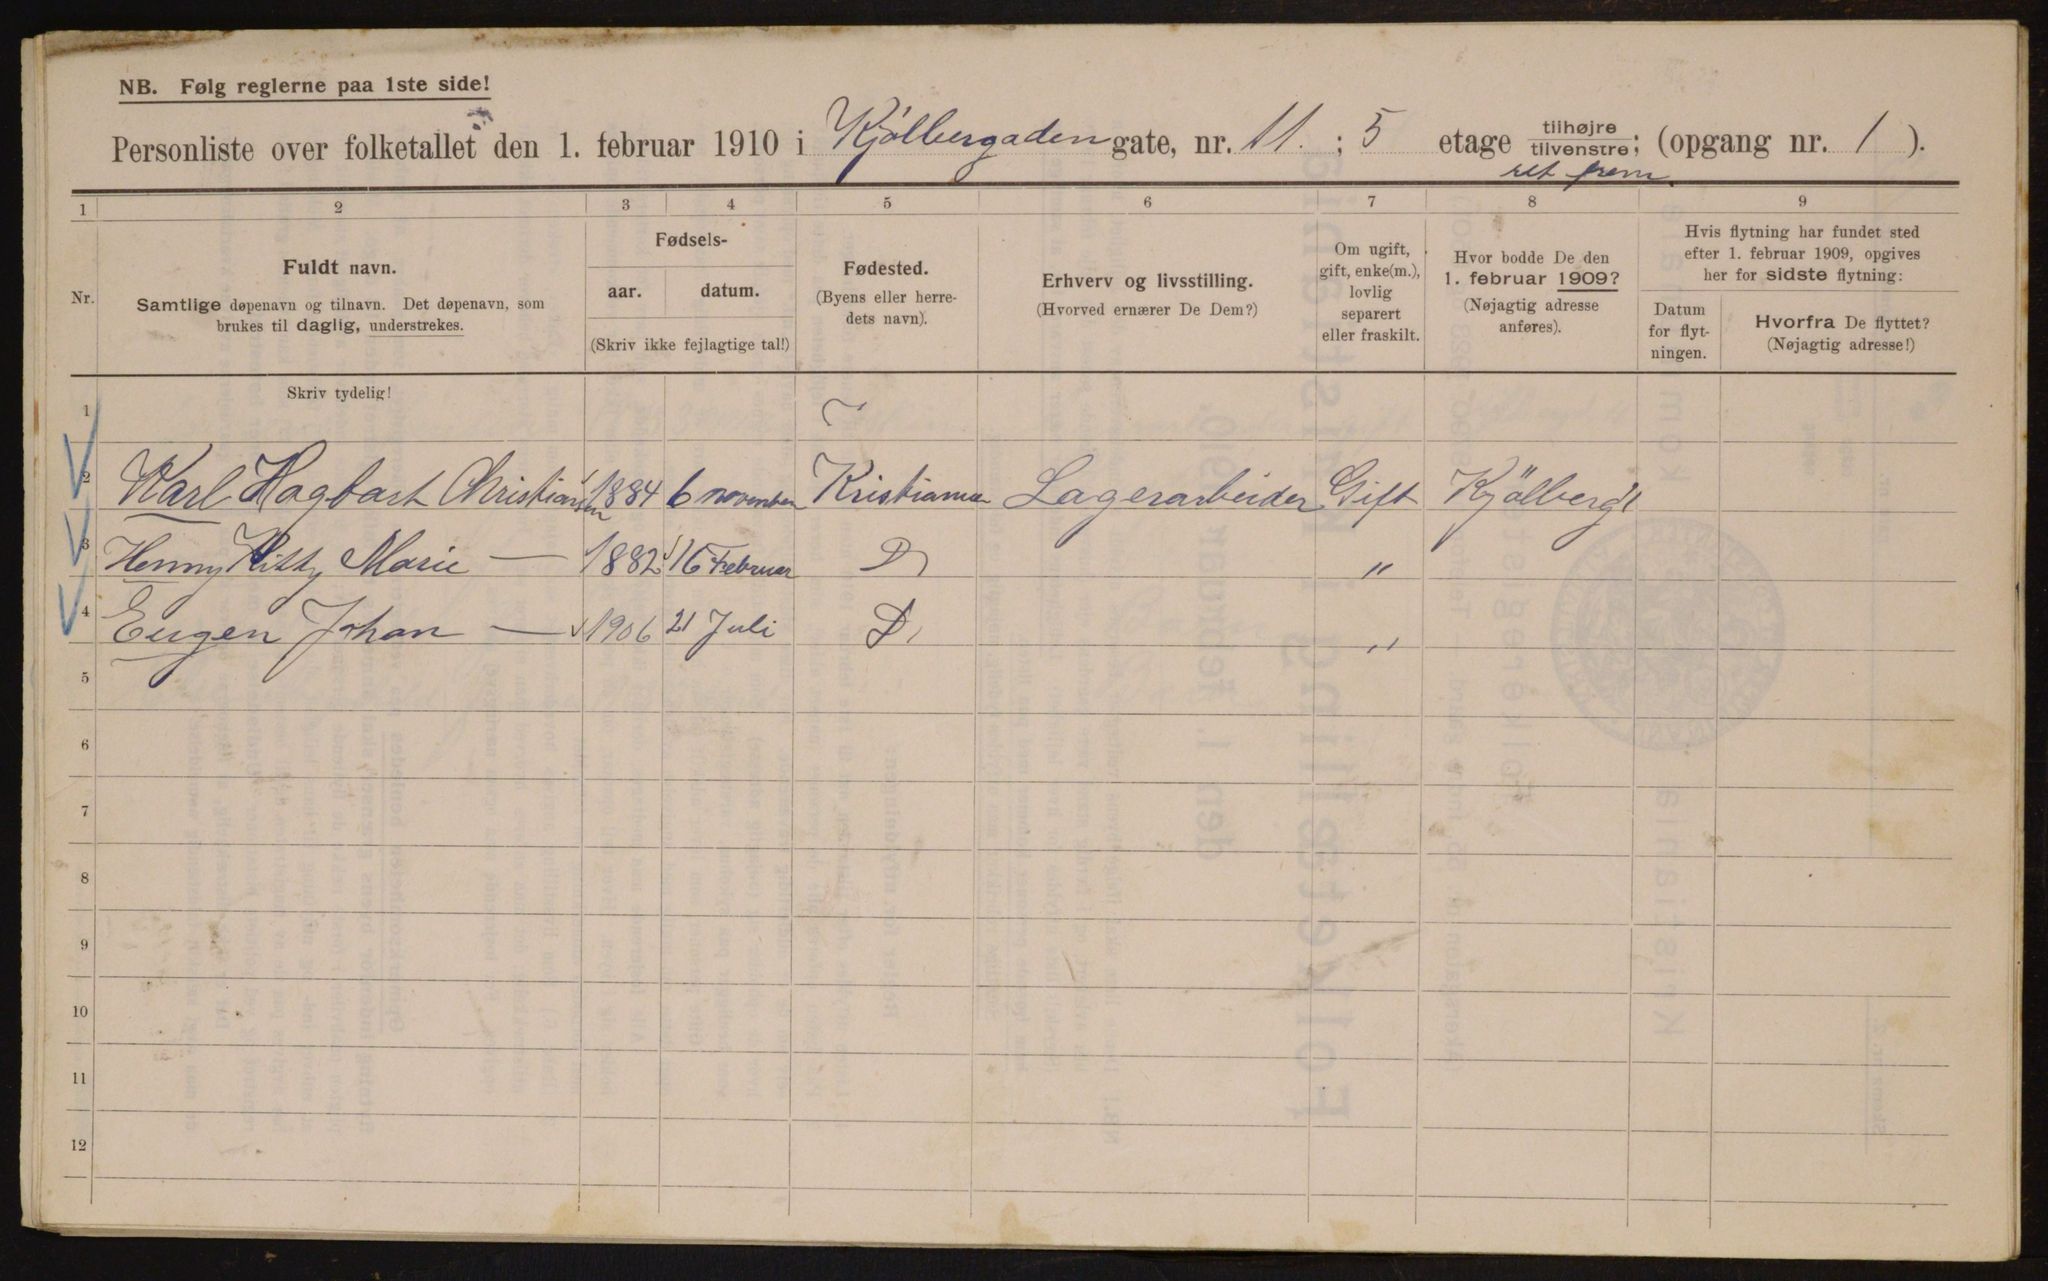 NB. Følg reglerne paa 1ste side!
Personliste over folketallet den 1. februar 1910 i Kjølbergaden gate, nr. 11. ; 5 etage tilhøjre tilvenstre; (opgang nr. 1 ).
ret frem.
1 2 3 4 5 6 7 8 9
Nr.
Fuldt navn.
Samtlige døpenavn og tilnavn. Det døpenavn, som
brukes til daglig, understrekes.
Fødsels-
aar. datum.
(Skriv ikke fejlagtige tal!)
Fødested.
(Byens eller herre-
dets navn).
Erhverv og livsstilling.
(Hvorved ernærer De Dem?)
Om ugift,
gift, enke(m.),
lovlig
separert
eller fraskilt.
Hvor bodde De den
1. februar 1909?
(Nøjagtig adresse
anføres).
Hvis flytning har fundet sted
efter 1. februar 1909, opgives
her for sidste flytning:
Datum
for flyt-
ningen.
Hvorfra De flyttet?
(Nøjagtig adresse!)
Skriv tydelig!
1
2 Karl Hagbart Christiansen 1884 6 november Kristiania Lagerarbeider Gift Kjölbergt
3 Henny Kitty Marie — 1882 16 Februar D "
4 Eugen Johan — 1906 21 Juli D "
5
6
7
8
9
10
11
12